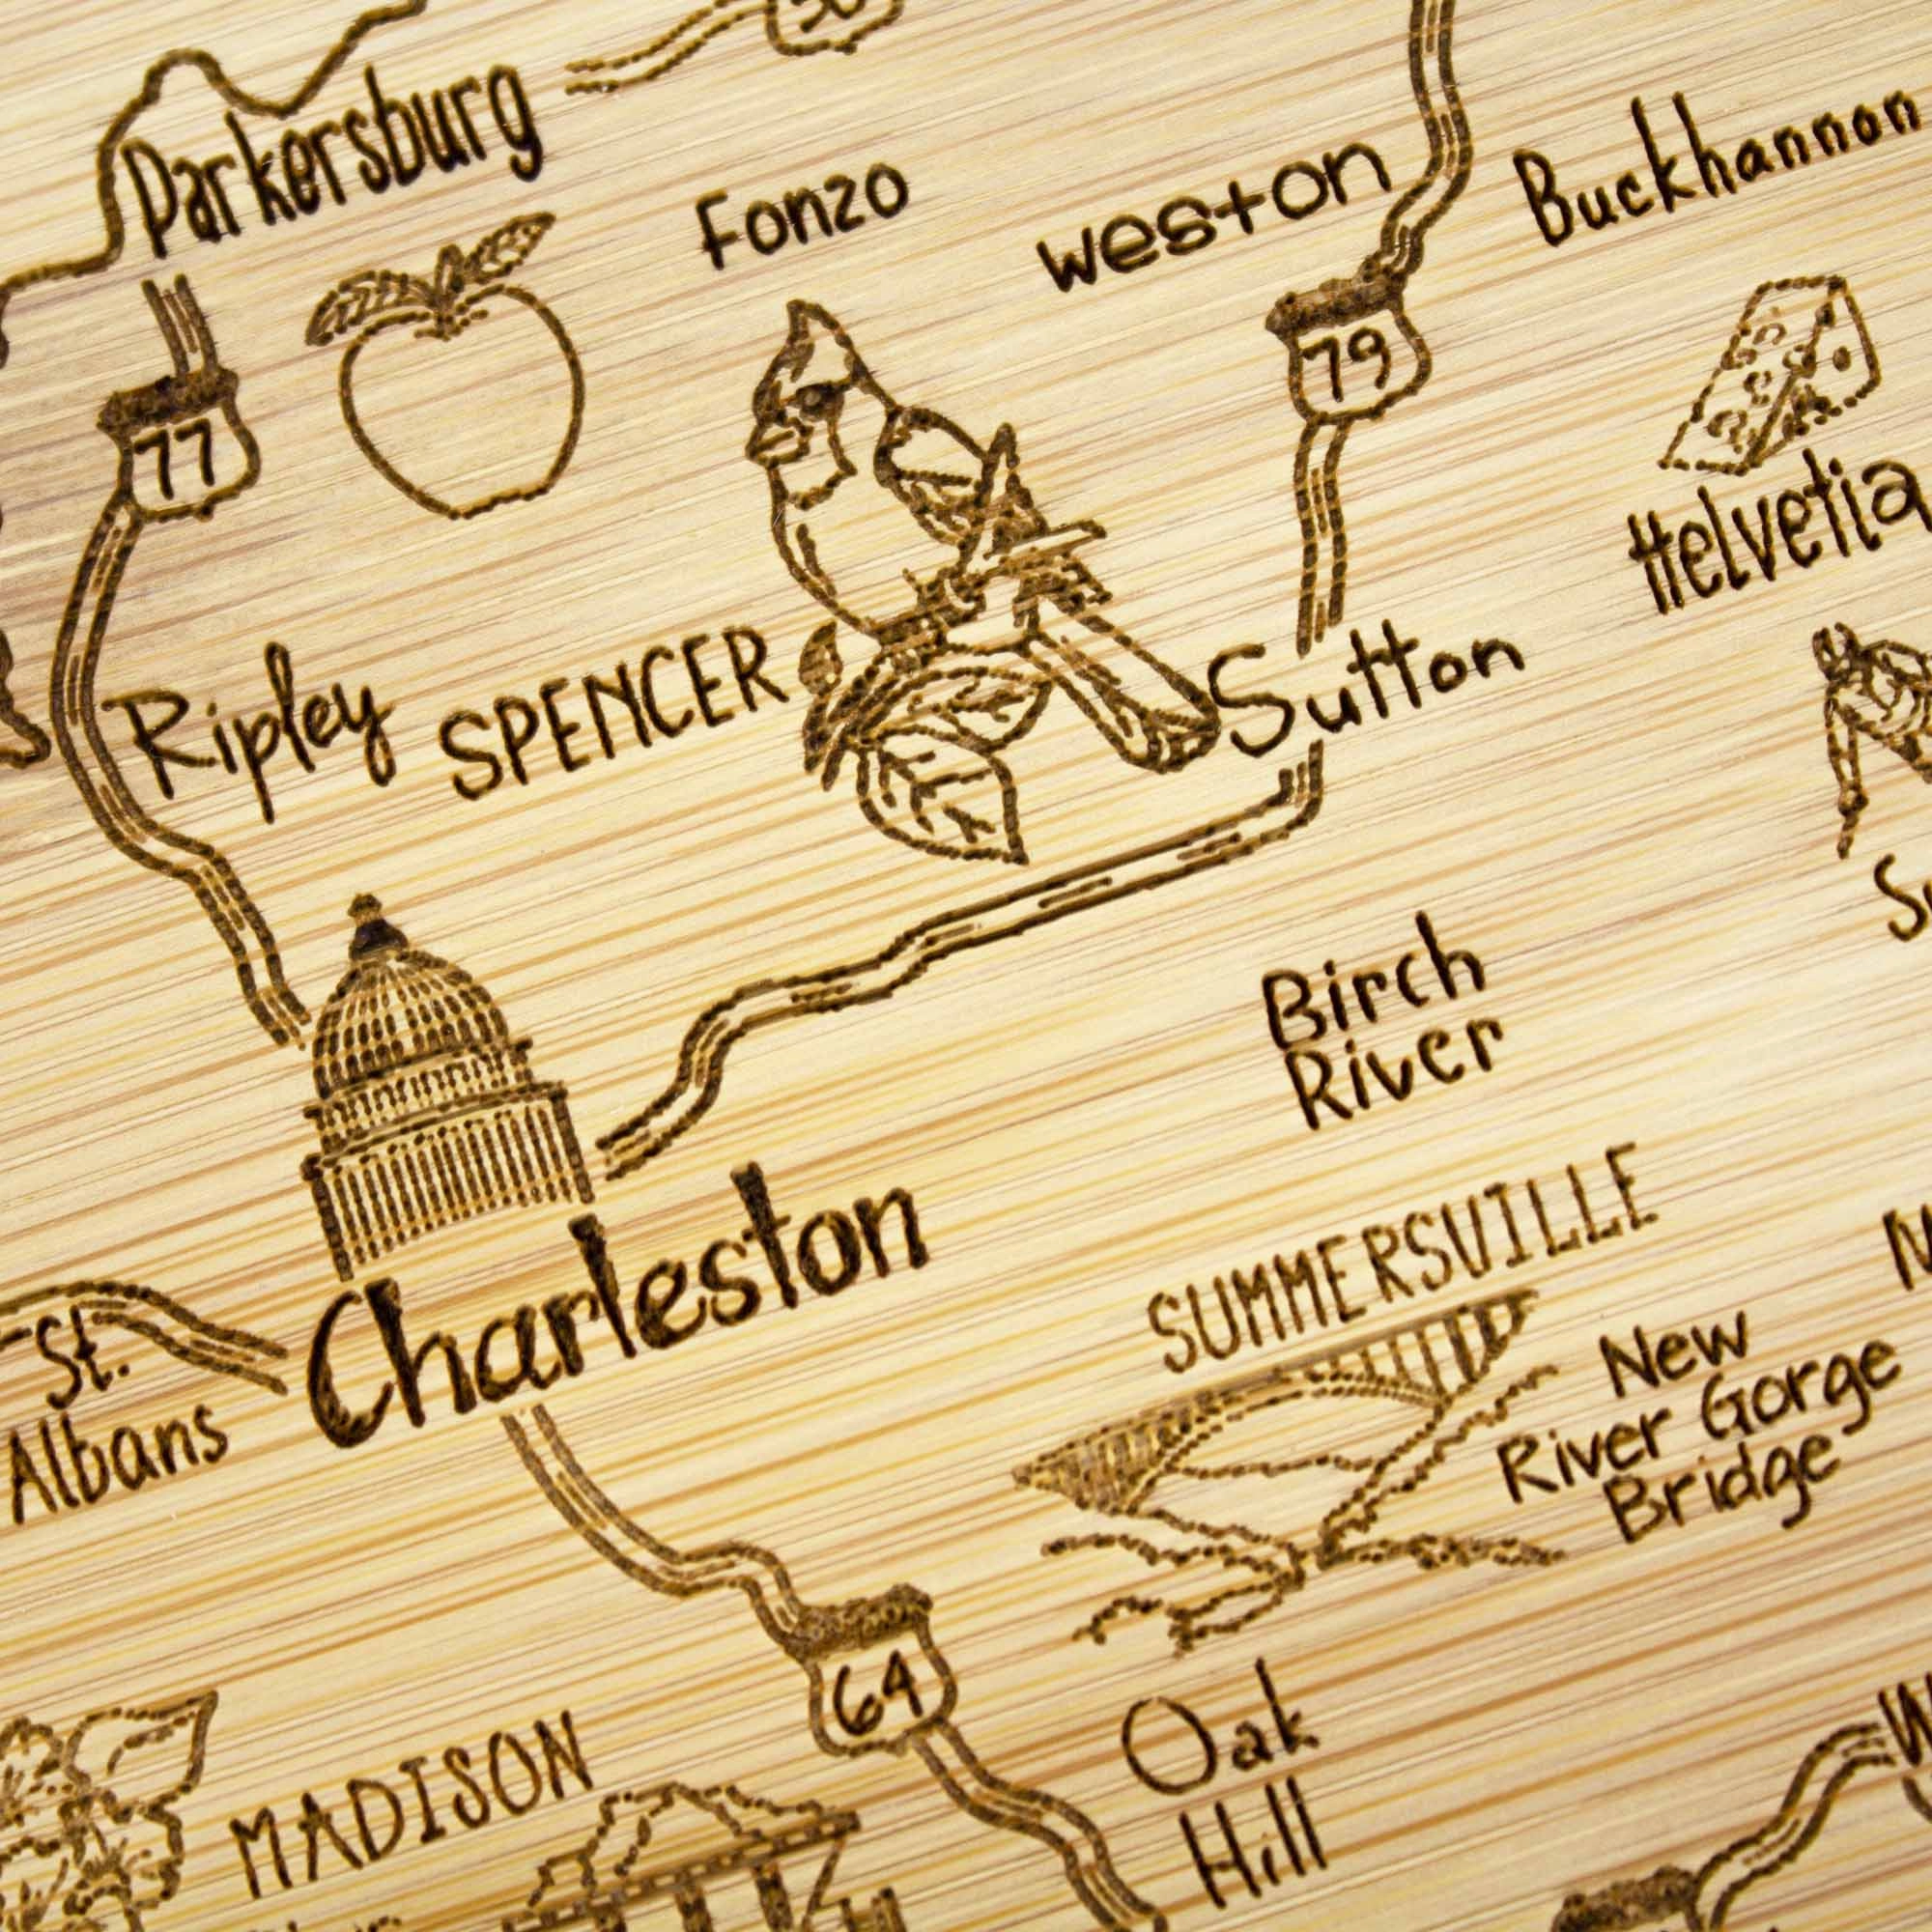 Parkersburg
Fonzo
Weston
Buckhannon
79
77
Helvetia
Ripley
SPENCER
Sutton
Birch
River
SUMMERSVILLE
Charleston
St.
Albans
New
River Gorge
Bridge
64
Oak
Hill
MADISON